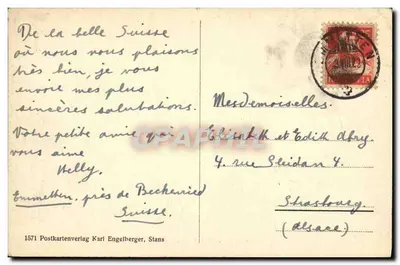 De la belle Suisse
où nous nous plaisons
très bien, je vous
envoie mes plus
sincères salutations.
Votre petite amie qui
vous aime
Nelly.
Emmetten, près de Beckenried
Suisse.
1571 Postkartenverlag Karl Engelberger, Stans
Mesdemoiselles.
Elisabeth et Edith
4. rue Sleidan 4.
Strasbourg
(Alsace)